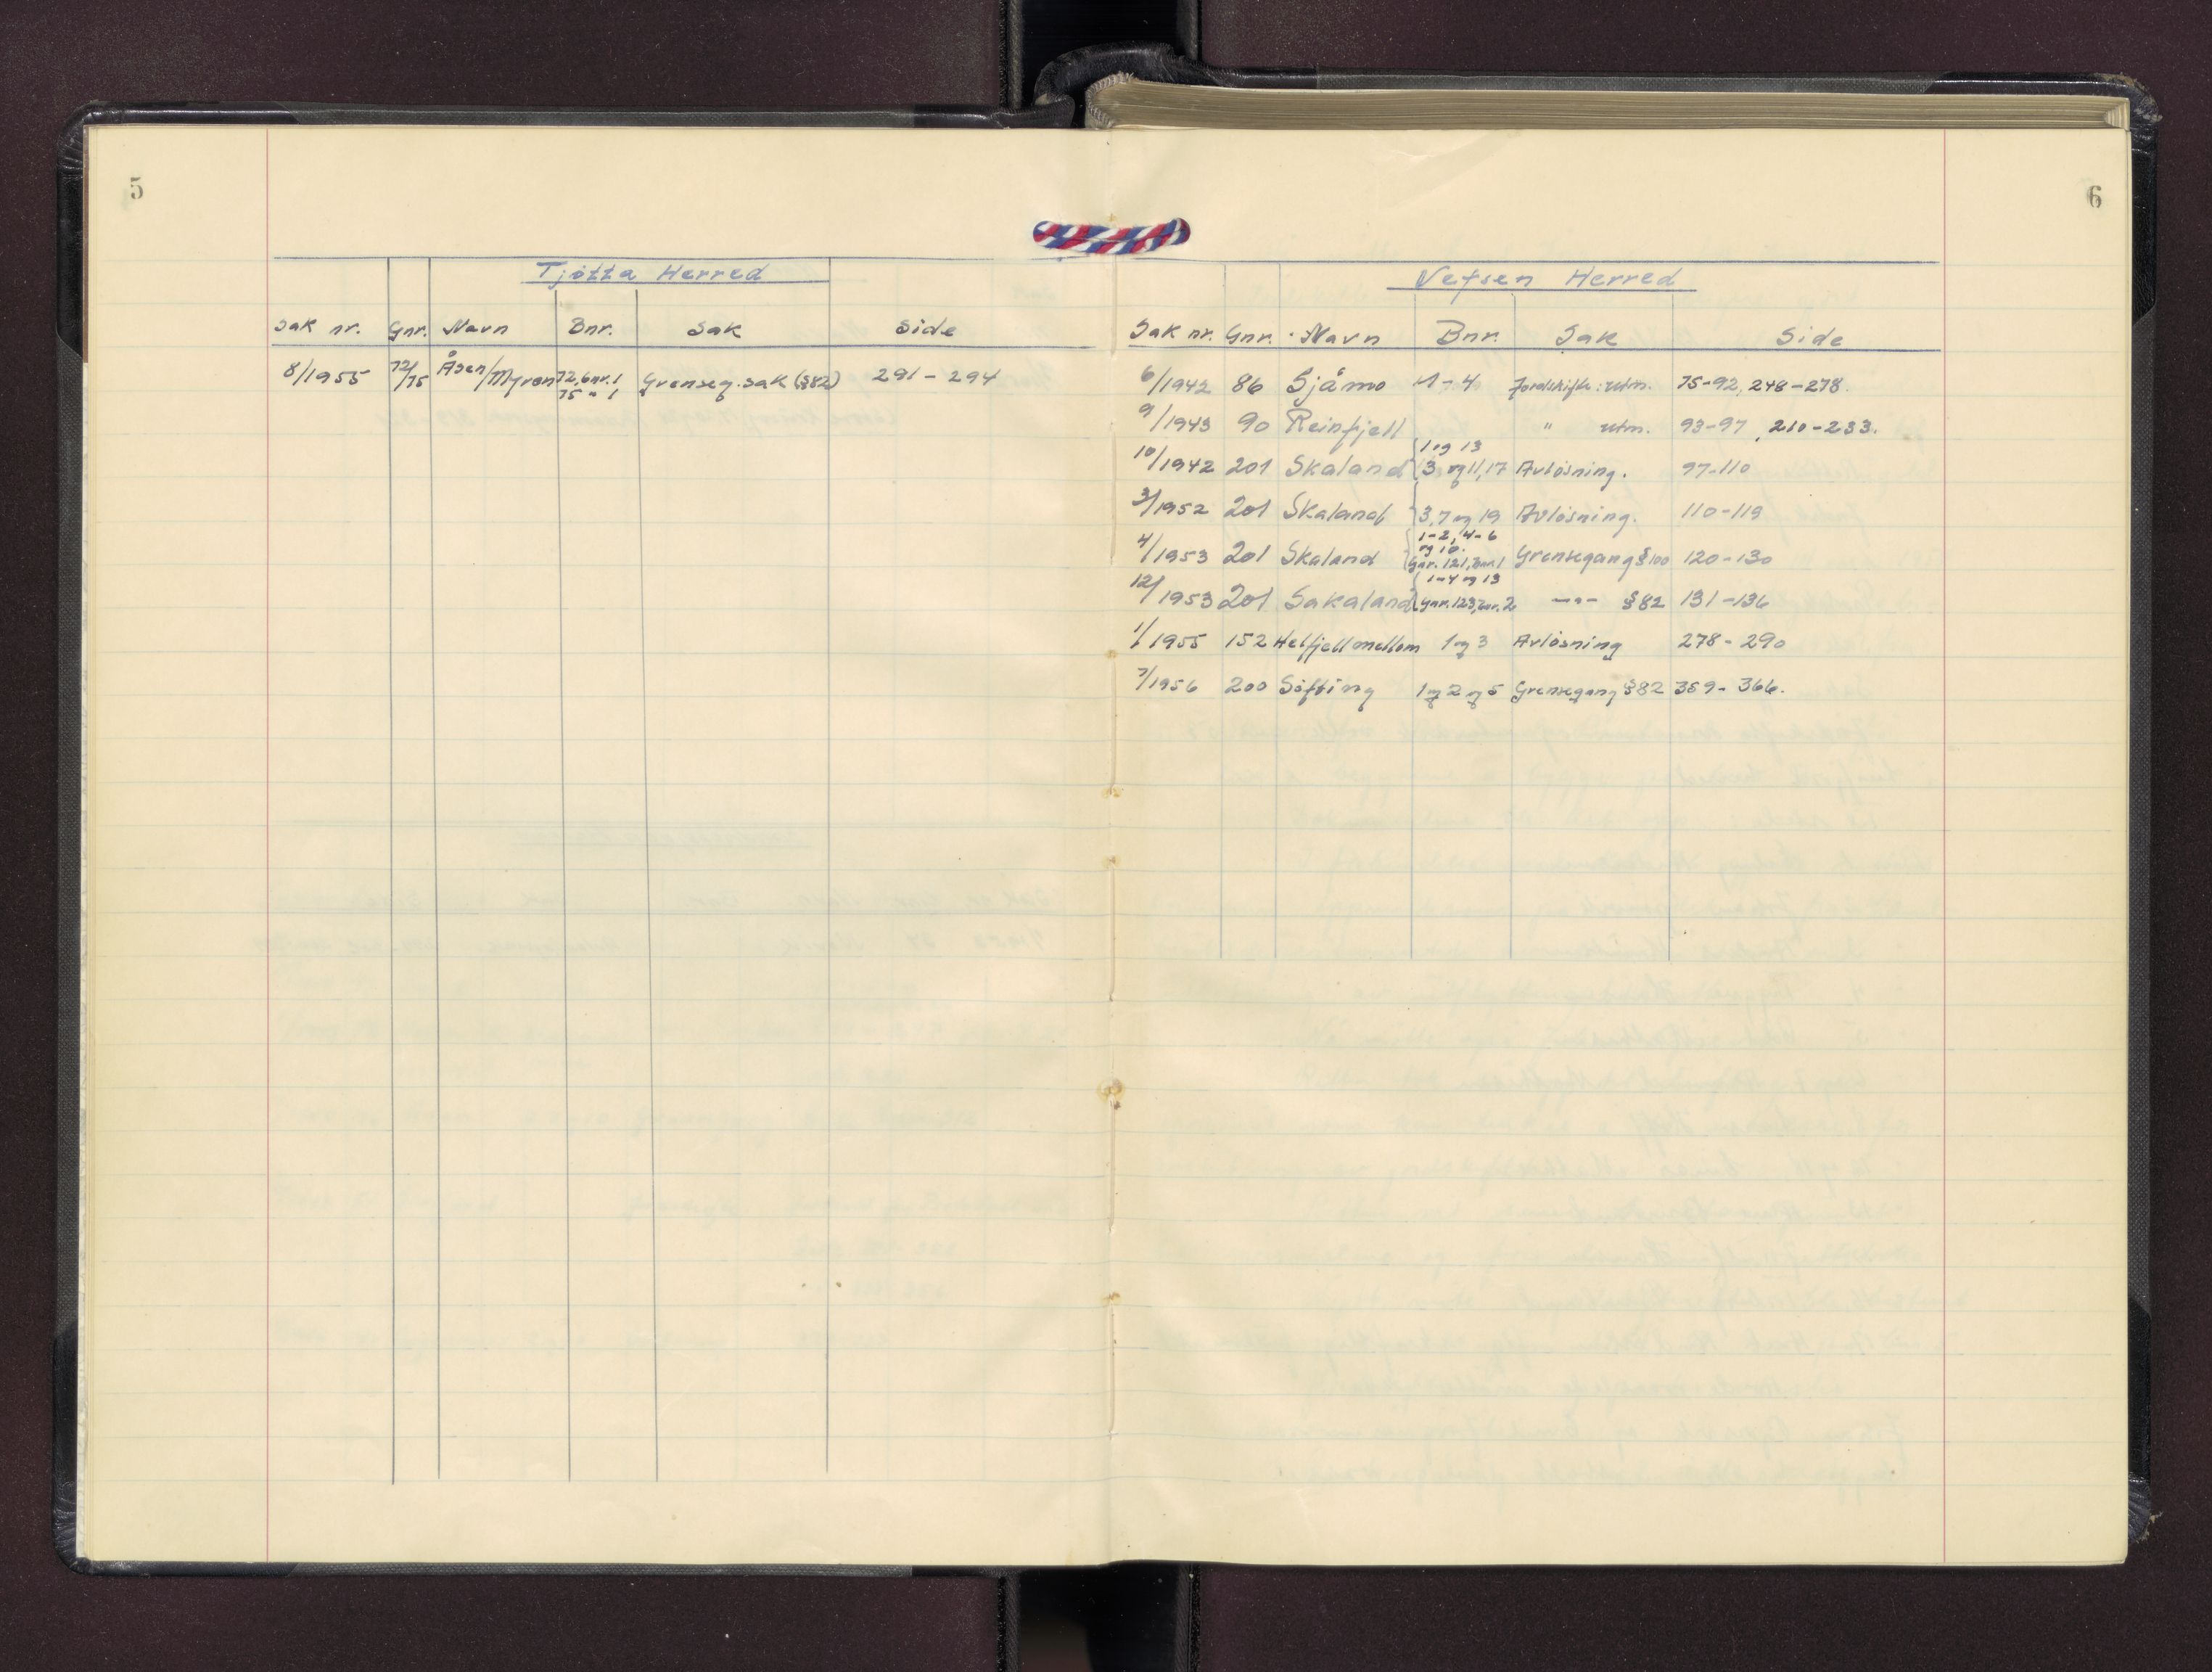 5
Tjøtta Herred
Sak nr. Gnr. Navn Bnr. Sak Side
8/1955 72/75 Åsen/Myren 72, bnr. 1 Grenseg. sak (§82) 291-294
75 " 1
6
Vefsen Herred
Sak nr. Gnr. Navn Bnr. Sak Side
6/1942 86 Sjåmo 1-4 Jordskifte: utm. 75-92, 248-278.
9/1943 90 Reinfjell " utm. 93-97, 210-233.
1 og 13
10/1942 201 Skaland 3 og 11, 17 Avløsning. 97-110
3/1952 201 Skaland 3, 7 og 19 Avløsning. 110-119
1-2, 4-6
og 10.
4/1953 201 Skaland Gnr. 121, bnr. 1 Grensegang §100 120-130
1-4 og 13
12/1953 201 Sakaland Gnr. 123, bnr. 2 -"- §82 131-136
1/1955 152 Helfjell mellom 1 og 3 Avløsning 278-290
7/1956 200 Søfting 1 og 2 og 5 Grensegang §82 359-366.